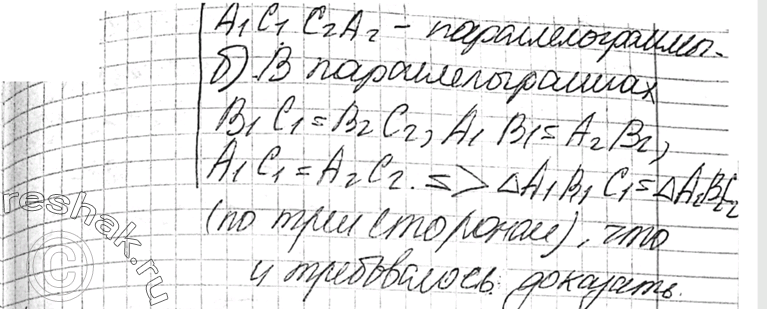 A₁C₁C₂A₂ – параллелограммы.
б) В параллелограммах
B₁C₁=B₂C₂, A₁B₁=A₂B₂,
A₁C₁=A₂C₂. => ΔA₁B₁C₁=ΔA₂B₂C₂
(по трем сторонам), что
и требовалось доказать.
© reshak.ru